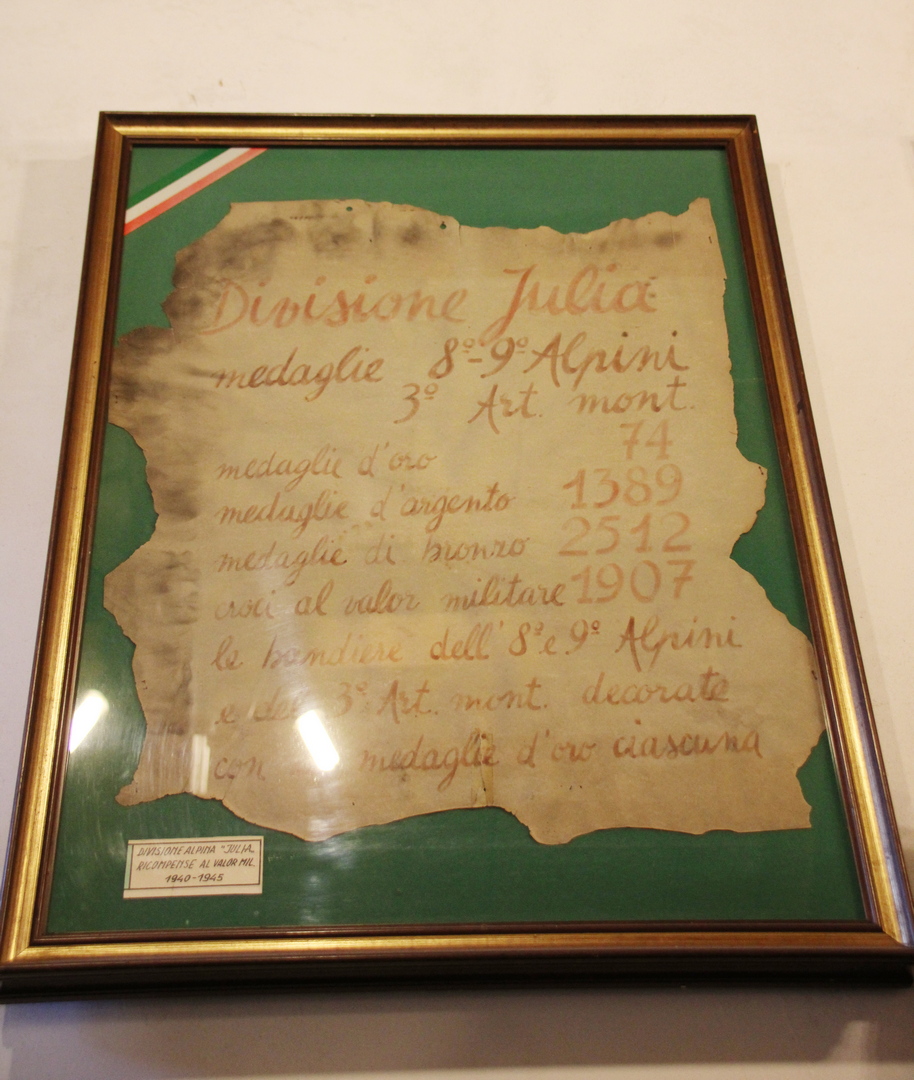 Divisione Julia
medaglie 8º-9º Alpini
3º Art. mont.
medaglie d'oro 74
medaglie d'argento 1389
medaglie di bronzo 2512
croci al valor militare 1907
le bandiere dell'8º e 9º Alpini
e del 3º Art. mont. decorate
con medaglie d'oro ciascuna
DIVISIONE ALPINA "JULIA"
RICOMPENSE AL VALOR MIL.
1940-1945